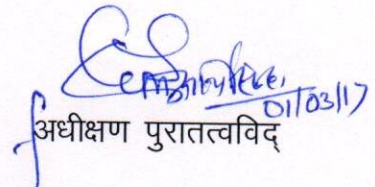 01/03/17
अधीक्षण पुरातत्वविद्